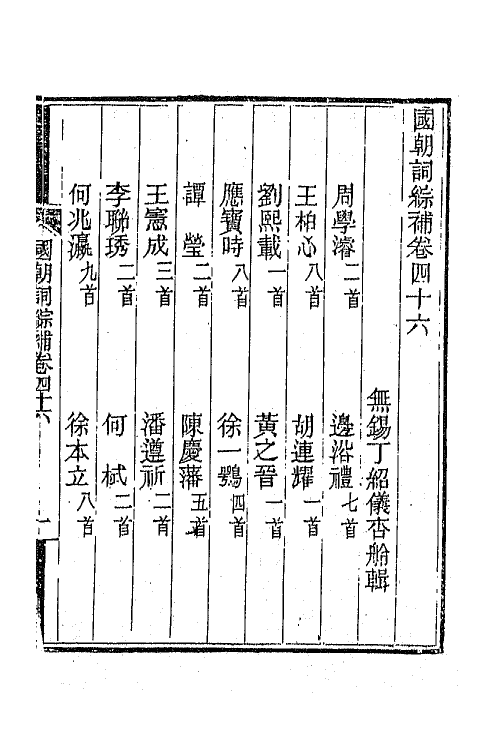 國朝詞綜補卷四十六
無錫丁紹儀杏舲輯
周學濬二首　邊浴禮七首
王柏心八首　胡連耀一首
劉熙載一首　黃之晉一首
應寶時八首　徐一鶚四首
譚瑩二首　陳慶藩五首
王憲成三首　潘遵祁二首
李聯琇二首　何栻二首
何兆瀛九首　徐本立八首
國朝詞綜補卷四十六　一